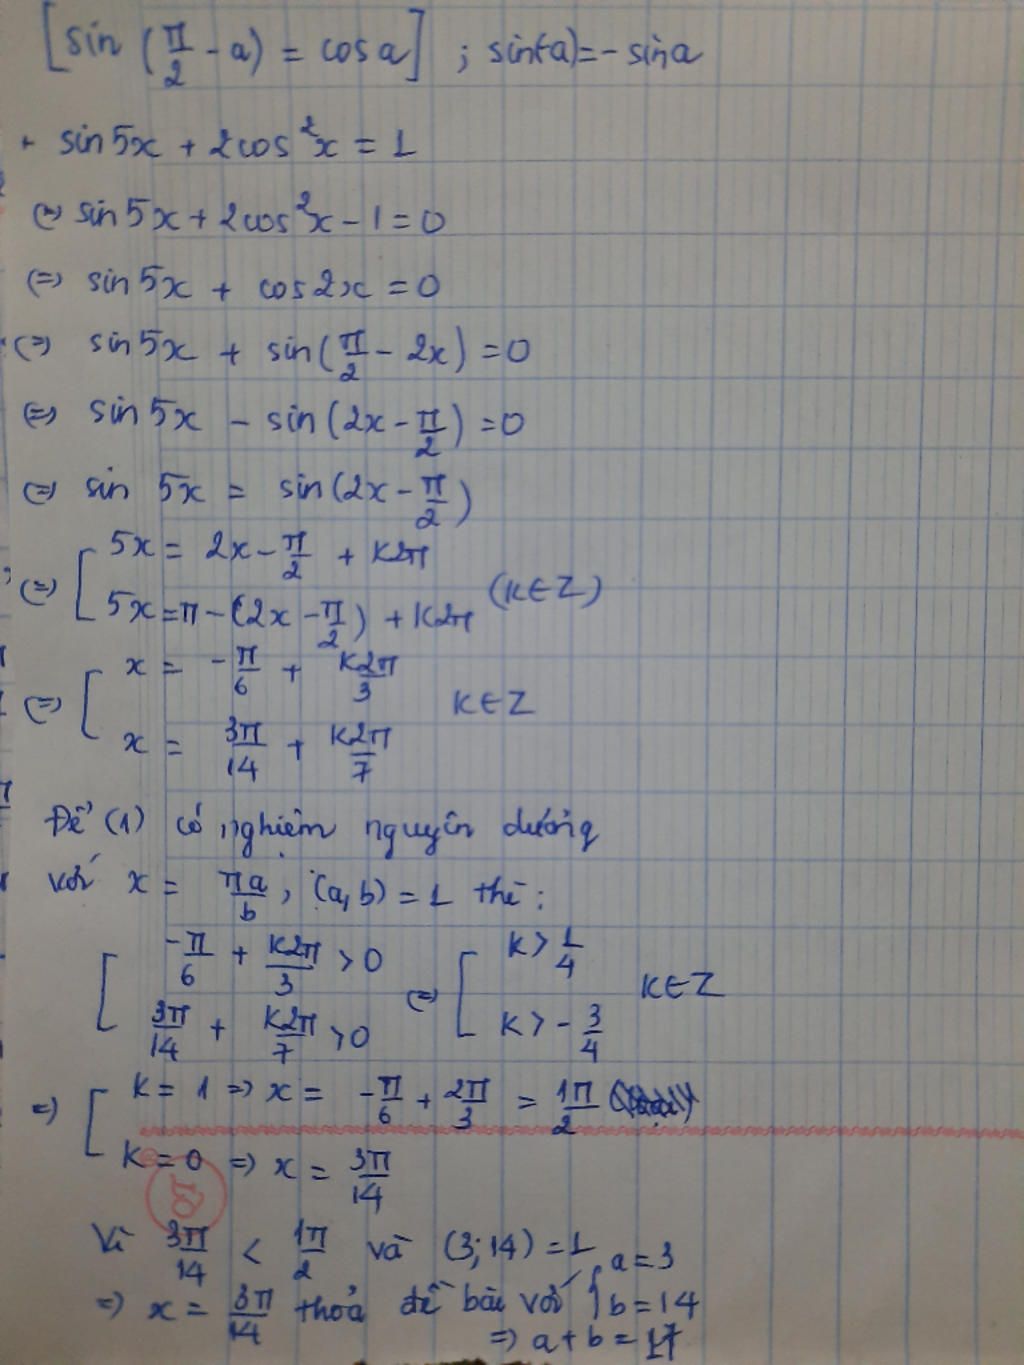 [sin (π/2 - a) = cos a] ; sin(-a) = - sin a
+ sin 5x + 2cos²x = 1
(=) sin 5x + 2cos²x - 1 = 0
(=) sin 5x + cos 2x = 0
(=) sin 5x + sin(π/2 - 2x) = 0
(=) sin 5x - sin(2x - π/2) = 0
(=) sin 5x = sin(2x - π/2)
(=) [ 5x = 2x - π/2 + k2π
5x = π - (2x - π/2) + k2π (k∈Z)
(=) [ x = -π/6 + k2π/3
x = 3π/14 + k2π/7 k∈Z
Để (1) có nghiệm nguyên dương
với x = πa/b, (a, b) = 1 thì:
[ -π/6 + k2π/3 > 0 (=) [ k > 1/4
3π/14 + k2π/7 > 0 k > -3/4 k∈Z
=) [ k = 1 => x = -π/6 + 2π/3 = 1π/2
k = 0 => x = 3π/14
Vì 3π/14 < 1π/2 và (3; 14) = 1
=) x = 3π/14 thoả đề bài với { a = 3
b = 14
=) a + b = 17